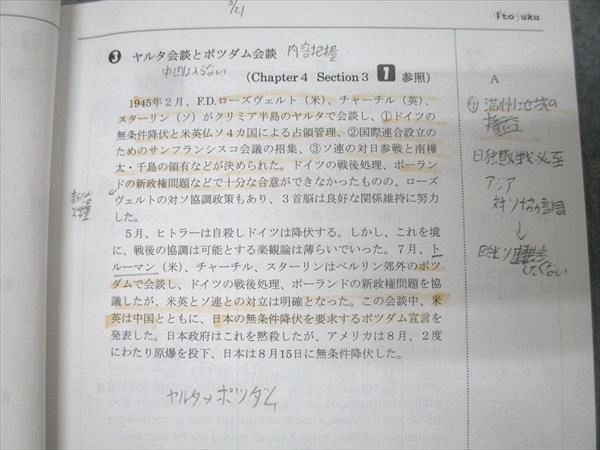 3/21
itojuku
❸ ヤルタ会談とポツダム会談 内容把握
中国入らない
(Chapter 4 Section 3 1 参照)
1945年2月、F.D.ローズヴェルト（米）、チャーチル（英）、
スターリン（ソ）がクリミア半島のヤルタで会談し、①ドイツの
無条件降伏と米英仏ソ4カ国による占領管理、②国際連合設立の
ためのサンフランシスコ会議の招集、③ソ連の対日参戦と南樺
太・千島の領有などが決められた。ドイツの戦後処理、ポーラン
ドの新政権問題などで十分な合意ができなかったものの、ローズ
ヴェルトの対ソ協調政策もあり、3首脳は良好な関係維持に努力
した。
5月、ヒトラーは自殺しドイツは降伏する。しかし、これを境
に、戦後の協調は可能とする楽観論は薄らいでいった。7月、ト
ルーマン（米）、チャーチル、スターリンはベルリン郊外のポツ
ダムで会談し、ドイツの戦後処理、ポーランドの新政権問題を協
議したが、米英とソ連との対立は明確となった。この会談中、米
英は中国とともに、日本の無条件降伏を要求するポツダム宣言を
発表した。日本政府はこれを黙殺したが、アメリカは8月、2度
にわたり原爆を投下、日本は8月15日に無条件降伏した。
ヤルタ→ポツダム
A
権益
日独敗戦必至
アジア
対ソ協調
↓